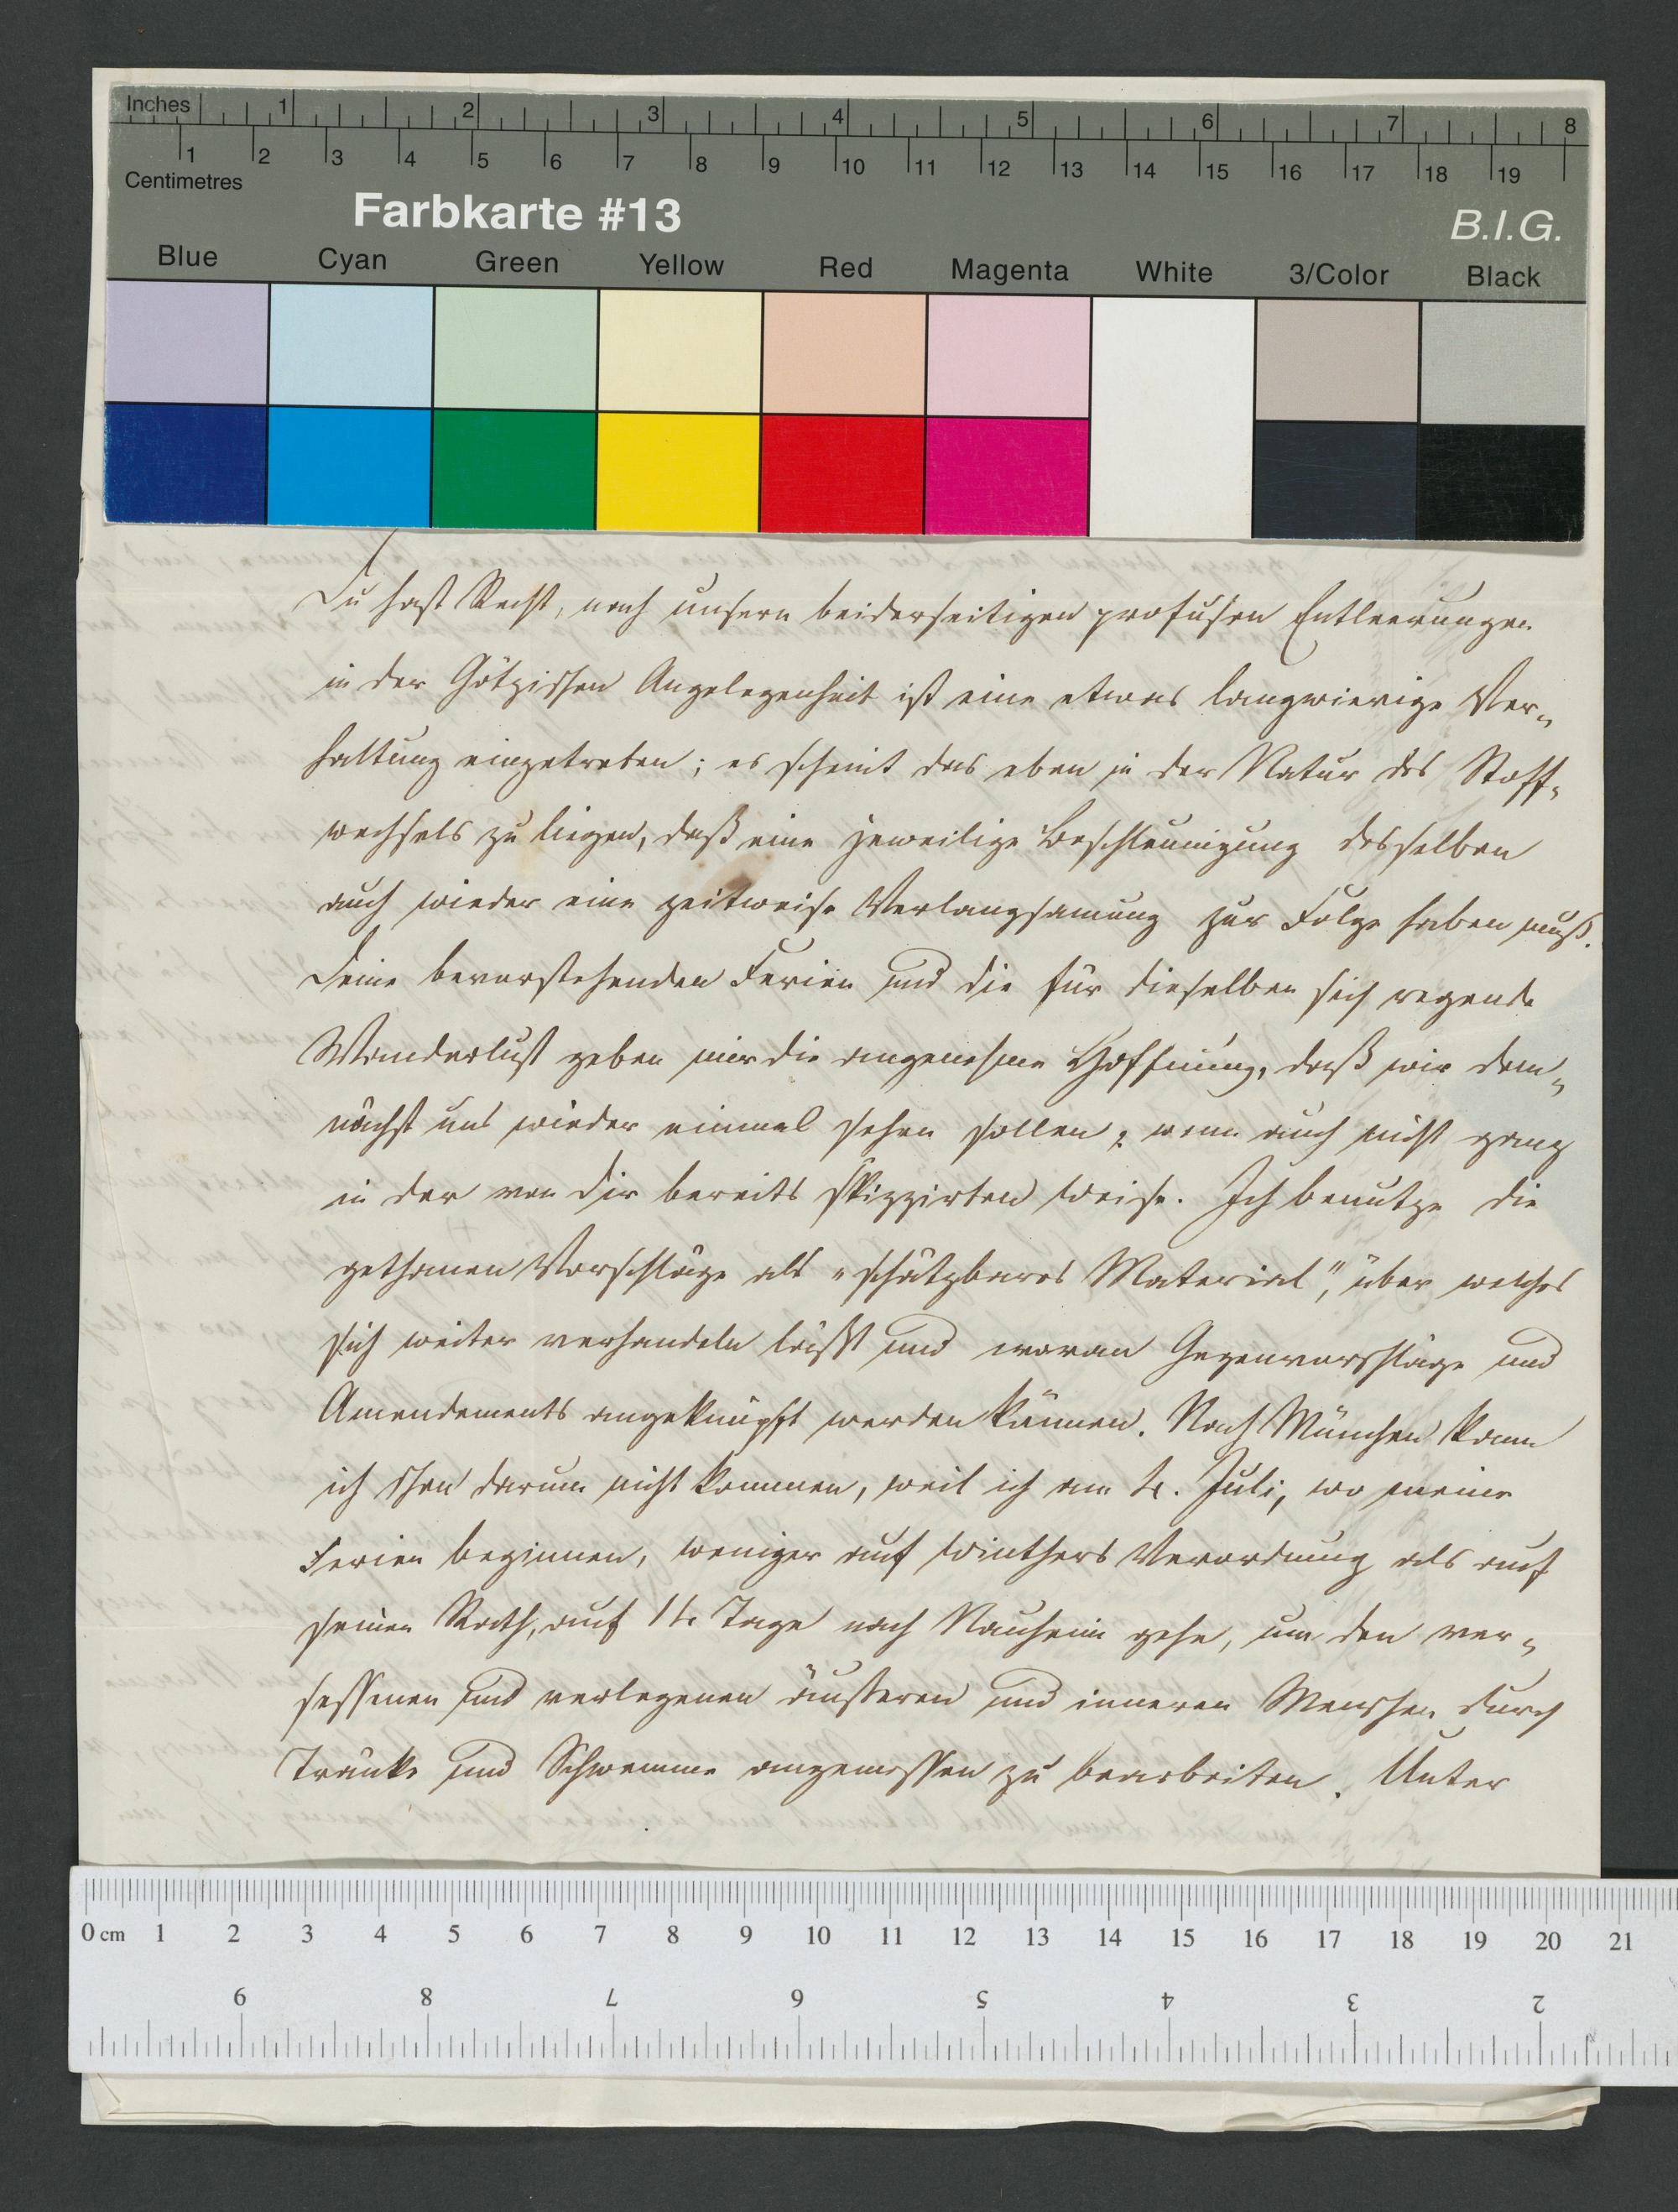 Inches 1 2 3 4 5 6 7 8
1 2 3 4 5 6 7 8 9 10 11 12 13 14 15 16 17 18 19
Centimetres
Farbkarte #13
B.I.G.
Blue Cyan Green Yellow Red Magenta White 3/Color Black
Du hast Recht, nach unsern beiderseitigen profusen Entleerungen
in der Götzischen Angelegenheit ist eine etwas langwierige Ver-
haltung eingetreten; es scheint das eben in der Natur des Stoff-
wechsels zu liegen, daß eine jeweilige Beschleunigung desselben
auch wieder eine zeitweise Verlangsamung zur Folge haben muß.
Deine bevorstehenden Ferien und die für dieselben sich regende
Wanderlust geben mir die angenehme Hoffnung, daß wir dem-
nächst uns wieder einmal sehen sollen, wenn auch nicht ganz
in der von dir bereits skizzirten Weise. Ich benutze die
gethanen Vorschläge als „schätzbares Material", über welches
sich weiter verhandeln läßt und woran Gegenvorschläge und
Amendements angeknüpft werden können. Nach München kann
ich schon darum nicht kommen, weil ich am 4. Juli, wo meine
Ferien beginnen, weniger auf Winthers Verordnung als auf
seinen Rath, auf 14 Tage nach Nauheim gehe, um den ver-
sessenen und verlegenen äußeren und inneren Menschen durch
Tränke und Schwemme angemessen zu bearbeiten. Unter
0 cm 1 2 3 4 5 6 7 8 9 10 11 12 13 14 15 16 17 18 19 20 21
9 8 7 6 5 4 3 2